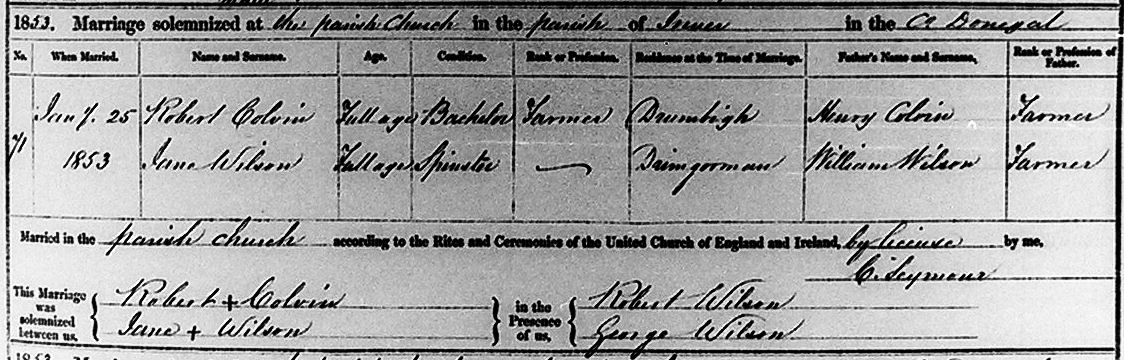 1853. Marriage solemnized at the parish Church in the parish of Inver in the Co Donegal
No. When Married. Name and Surname. Age. Condition. Rank or Profession. Residence at the Time of Marriage. Father's Name and Surname. Rank or Profession of Father.
71 Jany. 25 Robert Colvin Full age Bachelor Farmer Drumbigh Henry Colvin Farmer
1853 Jane Wilson Full age Spinster — Drimgorman William Wilson Farmer
Married in the parish church according to the Rites and Ceremonies of the United Church of England and Ireland, by license by me,
C. Seymour
This Marriage was solemnized between us, { Robert + Colvin } in the Presence of us, { Robert Wilson
Jane + Wilson George Wilson
1853.